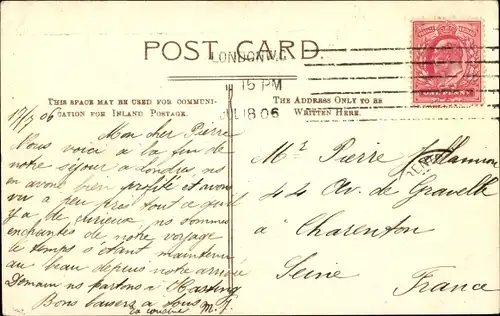 POST CARD.
LONDON W.C
15 PM
JUL 18 06
THIS SPACE MAY BE USED FOR COMMUNI-
CATION FOR INLAND POSTAGE.
THE ADDRESS ONLY TO BE
WRITTEN HERE.
17/7 06
Mon cher Pierre
Nous voici à la fin de
notre séjour à Londres ns
en avons bien profité et avons
vu a peu près tout ce qu'il
y a de curieux ns sommes
enchantés de notre voyage
le temps s'étant maintenu
au beau depuis notre arrivée
Demain ns partons à Hasting
Bons baisers a tous
ta cousine M.
Mr Pierre
44 Av. de Gravelle
à Charenton
Seine
France